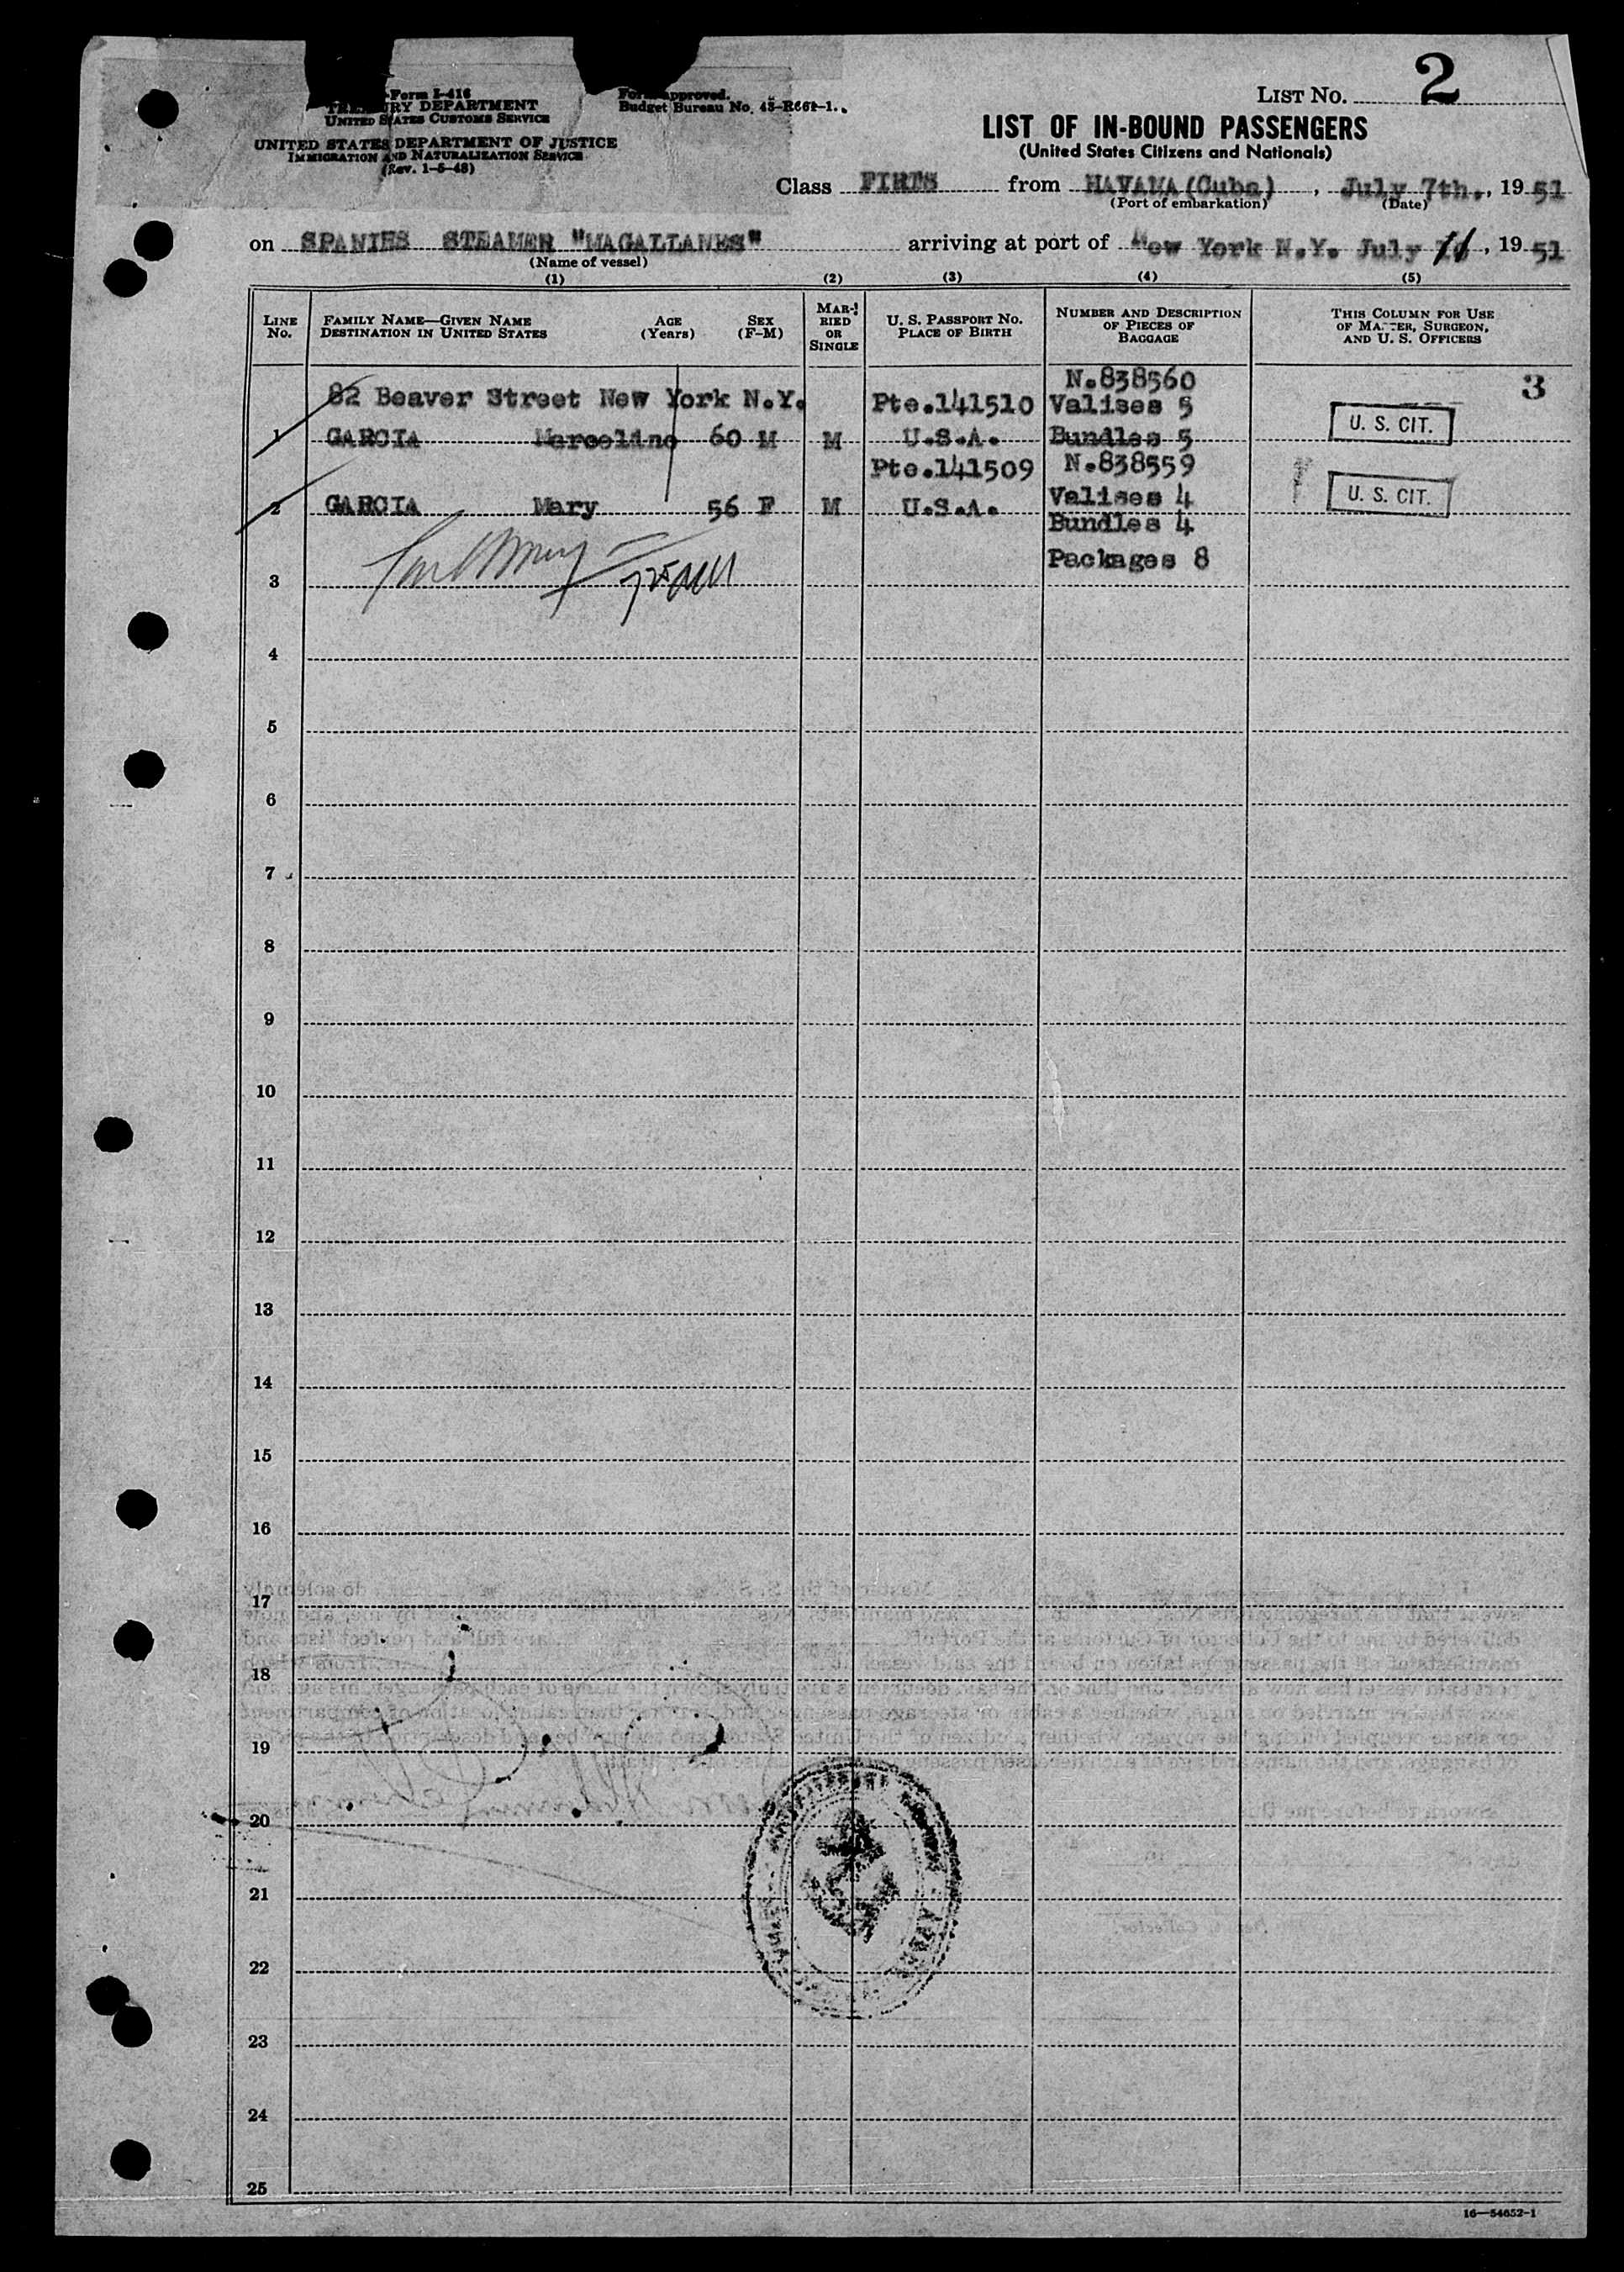 Form I-416
TREASURY DEPARTMENT
UNITED STATES CUSTOMS SERVICE
UNITED STATES DEPARTMENT OF JUSTICE
IMMIGRATION AND NATURALIZATION SERVICE
(Rev. 1-5-48)
Form approved.
Budget Bureau No. 43-R661-1.
LIST NO. 2
LIST OF IN-BOUND PASSENGERS
(United States Citizens and Nationals)
Class FIRTS from HAVANA (Cuba), July 7th., 19 51
(Port of embarkation) (Date)
on SPANIHS STEAMER "MAGALLANES" arriving at port of New York N.Y. July 11, 19 51
(Name of vessel)
(1) (2) (3) (4) (5)
LINE NO. FAMILY NAME—GIVEN NAME DESTINATION IN UNITED STATES AGE (Years) SEX (F-M) MARRIED OR SINGLE U. S. PASSPORT NO. PLACE OF BIRTH NUMBER AND DESCRIPTION OF PIECES OF BAGGAGE THIS COLUMN FOR USE OF MASTER, SURGEON, AND U. S. OFFICERS
N.838560 3
82 Beaver Street New York N.Y. Pte.141510 Valises 5 U. S. CIT.
1 GARCIA Marcelino 60 M M U.S.A. Bundles 5
Pte.141509 N.838559
Valises 4 U. S. CIT.
2 GARCIA Mary 56 F M U.S.A.
Bundles 4
Packages 8
3
4
5
6
7
8
9
10
11
12
13
14
15
16
17
18
19
20
21
22
23
24
25
16—54652-1